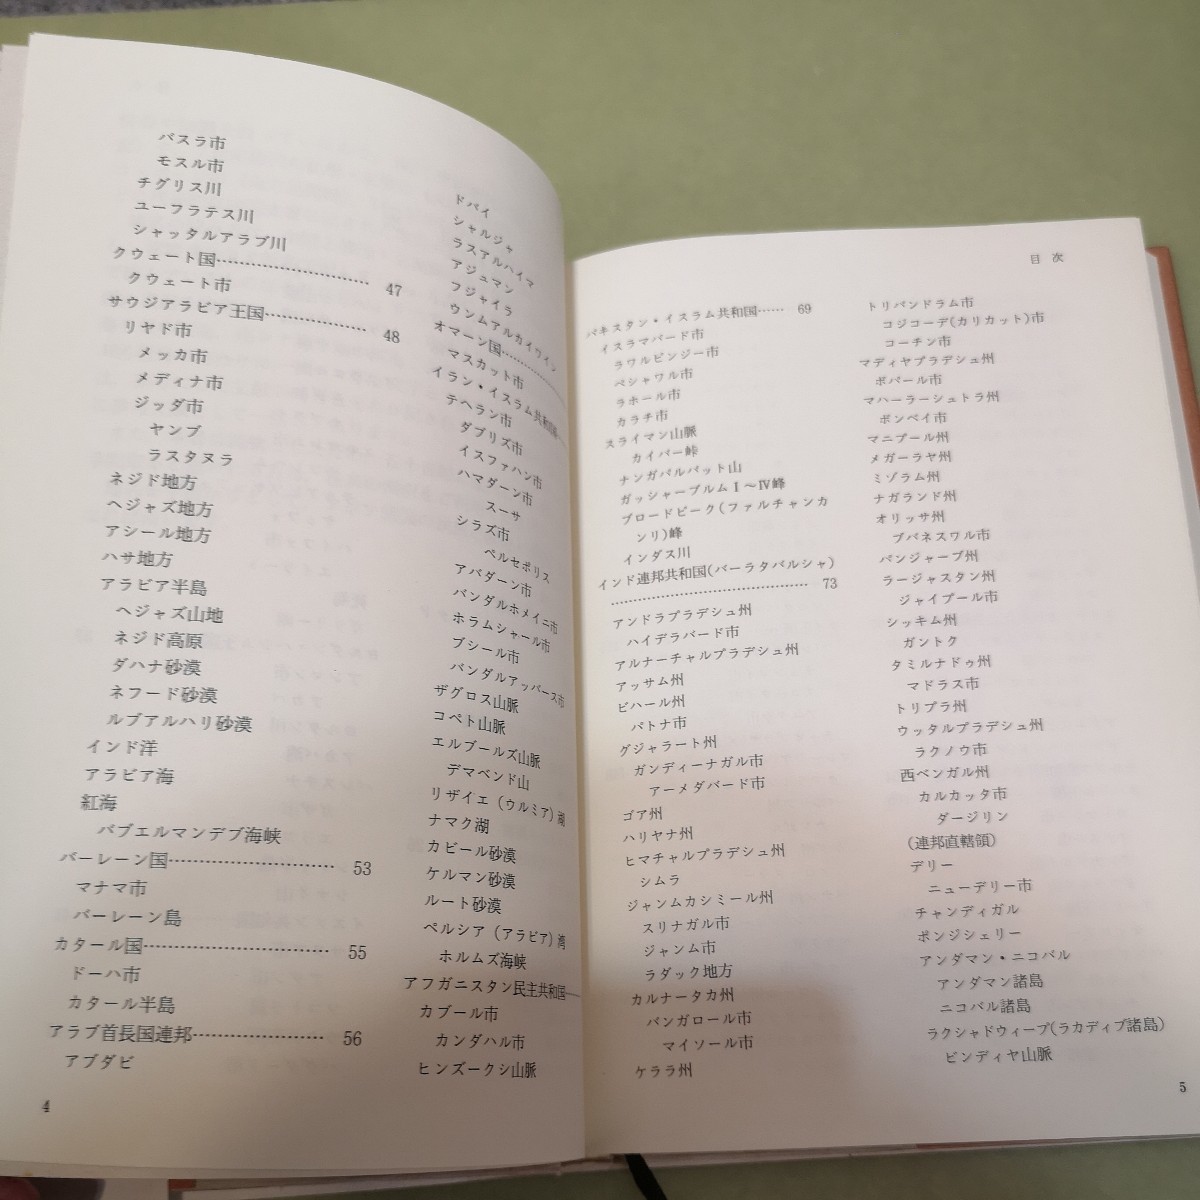 バスラ市
モスル市
チグリス川
ユーフラテス川
シャッタルアラブ川
クウェート国……………………… 47
クウェート市
サウジアラビア王国……………… 48
リヤド市
メッカ市
メディナ市
ジッダ市
ヤンブ
ラスタヌラ
ネジド地方
ヘジャズ地方
アシール地方
ハサ地方
アラビア半島
ヘジャズ山地
ネジド高原
ダハナ砂漠
ネフード砂漠
ルブアルハリ砂漠
インド洋
アラビア海
紅海
バブエルマンデブ海峡
バーレーン国……………………… 53
マナマ市
バーレーン島
カタール国………………………… 55
ドーハ市
カタール半島
アラブ首長国連邦………………… 56
アブダビ
4
ドバイ
シャルジャ
ラスアルハイマ
アジュマン
フジャイラ
ウンムアルカイワイン
オマーン国…………
マスカット市
イラン・イスラム共和国
テヘラン市
ダブリズ市
イスファハン市
ハマダーン市
スーサ
シラズ市
ペルセポリス
アバダーン市
バンダルホメイニ市
ホラムシャール市
ブシール市
バンダルアッバース市
ザグロス山脈
コペト山脈
エルブールズ山脈
デマベンド山
リザイエ(ウルミア)湖
ナマク湖
カビール砂漠
ケルマン砂漠
ルート砂漠
ペルシア(アラビア)湾
ホルムズ海峡
アフガニスタン民主共和国
カブール市
カンダハル市
ヒンズークシ山脈
目次
パキスタン・イスラム共和国…… 69
イスラマバード市
ラワルピンジー市
ペシャワル市
ラホール市
カラチ市
スライマン山脈
カイバー峠
ナンガパルバット山
ガッシャーブルムⅠ～Ⅳ峰
ブロードピーク(ファルチャンカ
ンリ)峰
インダス川
インド連邦共和国(バーラタバルシャ)
………………………………… 73
アンドラプラデシュ州
ハイデラバード市
アルナーチャルプラデシュ州
アッサム州
ビハール州
パトナ市
グジャラート州
ガンディーナガル市
アーメダバード市
ゴア州
ハリヤナ州
ヒマチャルプラデシュ州
シムラ
ジャンムカシミール州
スリナガル市
ジャンム市
ラダック地方
カルナータカ州
バンガロール市
マイソール市
ケララ州
トリバンドラム市
コジコーデ(カリカット)市
コーチン市
マディヤプラデシュ州
ボパール市
マハーラーシュトラ州
ボンベイ市
マニプール州
メガーラヤ州
ミゾラム州
ナガランド州
オリッサ州
ブバネスワル市
パンジャーブ州
ラージャスタン州
ジャイプール市
シッキム州
ガントク
タミルナドゥ州
マドラス市
トリプラ州
ウッタルプラデシュ州
ラクノウ市
西ベンガル州
カルカッタ市
ダージリン
(連邦直轄領)
デリー
ニューデリー市
チャンディガル
ポンジシェリー
アンダマン・ニコバル
アンダマン諸島
ニコバル諸島
ラクシャドウィープ(ラカディブ諸島)
ビンディヤ山脈
5